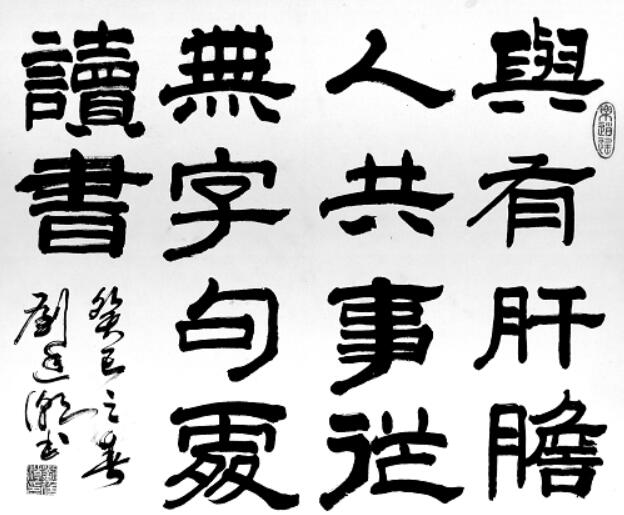 與有肝膽
人共事從
無字句處
讀書
癸巳之春
劉廷潮書